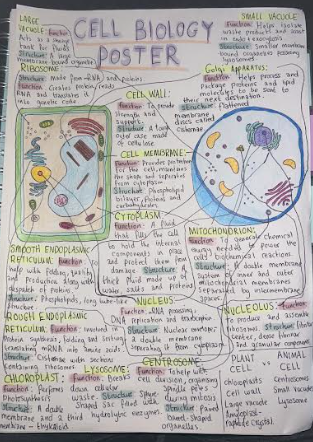 CELL BIOLOGY
POSTER
LARGE
VACUOLE Function:
Acts as a storage
tank for fluids
Structure: A large
membrane bound organelle
RIBOSOME
Structure: made from RNA and proteins
Function: Creates protein, reads
RNA and translates it
into genetic code
SMALL VACUOLE
Function: Helps isolate
waste products and assist
in endo + exocytosis
Structure: Smaller membrane
bound compared to
lysosomes
Golgi APPARATUS:
Function: Helps process and
package proteins and lipid
molecules to be sent to
their next destination.
Structure: flattened
membrane
discs called
cisternae
CELL WALL:
Function: To provide
strength and
support.
Structure: A tough
outer case made
of cellulose
CELL MEMBRANE:
Function: Provides protection
for the cell, maintains
the shape and separates
from cytoplasm
Structure: Phospholipid
bilayer, proteins and
carbohydrates
CYTOPLASM
Function: A fluid
that fills the cell
to hold the
internal components in place
and protect them from
damage. Structure: A
thick fluid made up of
water, salts and proteins
MITOCHONDRIONS
Function: To generate chemical
energy needed to power the
cell's biochemical reactions.
Structure: A double membrane
system of inner and outer
mitochondrial membranes
by intermembrane
spaces.
SMOOTH ENDOPLASMIC
RETICULUM: Function: to
help with folding, quality
and production along with
despatch of protein
Structure: Phospholipids, long tube-like
structure
NUCLEUS
Function: RNA processing,
DNA replication and transcription
Structure: Nuclear envelope:
a double membrane
separating it from cytoplasm
NUCLEOLUS: Function:
to produce and assemble
ribosomes. Structure: fibrillar
center, dense fibrillar component
and granular component
ROUGH ENDOPLASMIC
RETICULUM: Function: involved in
Protein synthesis, folding and sorting,
translating mRNA into amino acids.
Structure: Cisternae with sections
containing ribosomes
CHLOROPLAST:
Function: Performs
photosynthesis
Structure: A double
membrane and a third
membrane - thylakoid
LYSOSOME:
Function: Breaks
down cellular
waste. Structure: Sphere
shaped sac filled with
hydrolytic enzymes.
CENTROSOME:
Function: To help with
cell division, organising
spindle poles
during mitosis
Structure: Paired
barrel-shaped
organelles
PLANT CELL VS ANIMAL CELL
chloroplasts Centrosomes
Cell wall Small vacuole
Large vacuole Lysosome
Amyloplast